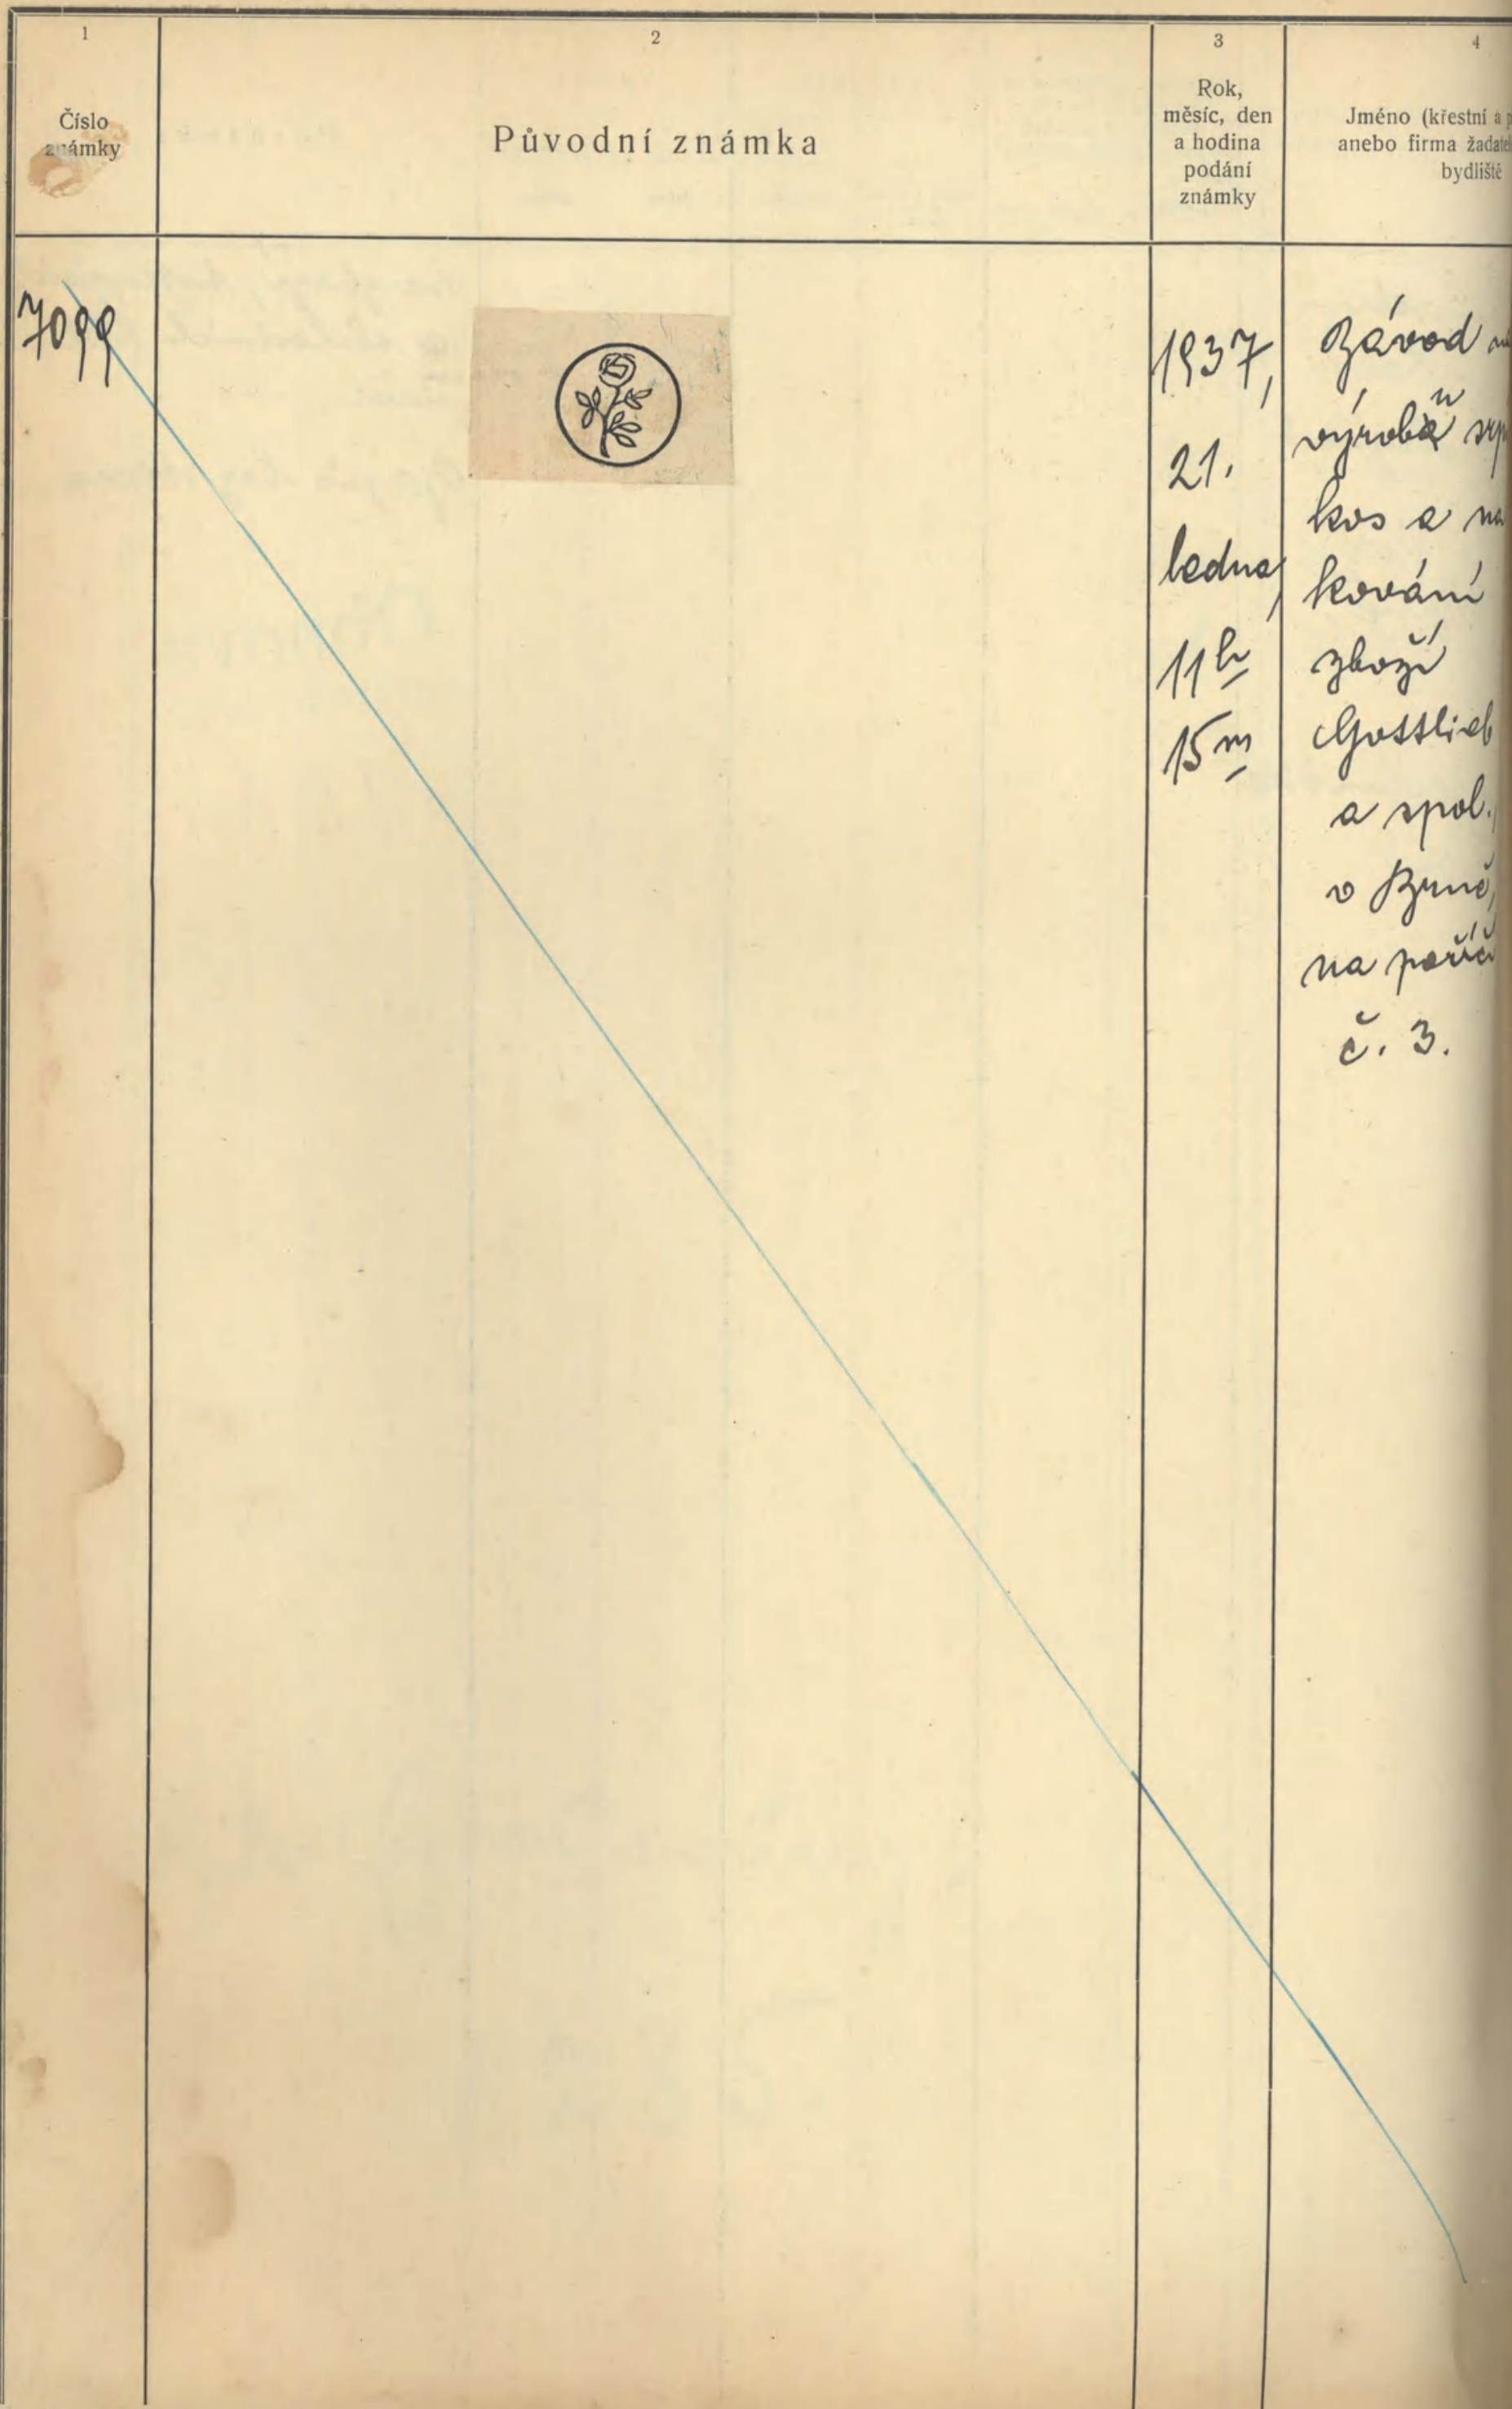 1
Číslo
známky
2
Původní známka
3
Rok,
měsíc, den
a hodina
podání
známky
4
Jméno (křestní a p
anebo firma žadatel
bydliště
7099
1937,
21.
ledna,
11 h
15 m
Závod
výrobu srp
kos a na
kování
zboží
Gottlieb
a spol.,
v Brně,
na poříčí
č. 3.